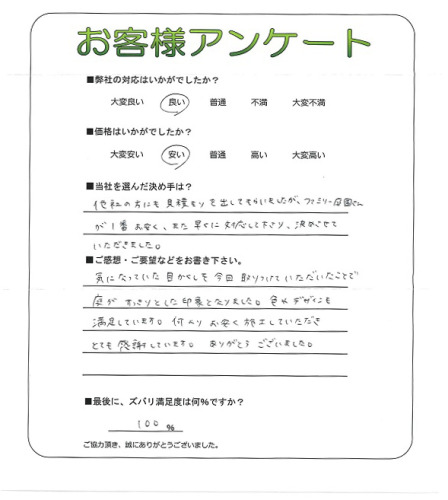 お客様アンケート
■弊社の対応はいかがでしたか?
大変良い 良い 普通 不満 大変不満
■価格はいかがでしたか?
大変安い 安い 普通 高い 大変高い
■当社を選んだ決め手は?
他社の方にも見積もりを出してもらいましたが、ファミリー庭園さん
が1番お安く、また早々に対応して下さり、決めさせて
いただきました。
■ご感想・ご要望などをお書き下さい。
気になっていた目かくしも今回取りつけていただいたことで
庭がすっきりとした印象となりました。色やデザインも
満足しています。何よりお安く施工していただき
とても感謝しています。ありがとうございました。
■最後に、ズバリ満足度は何%ですか?
100 %
ご協力頂き、誠にありがとうございました。